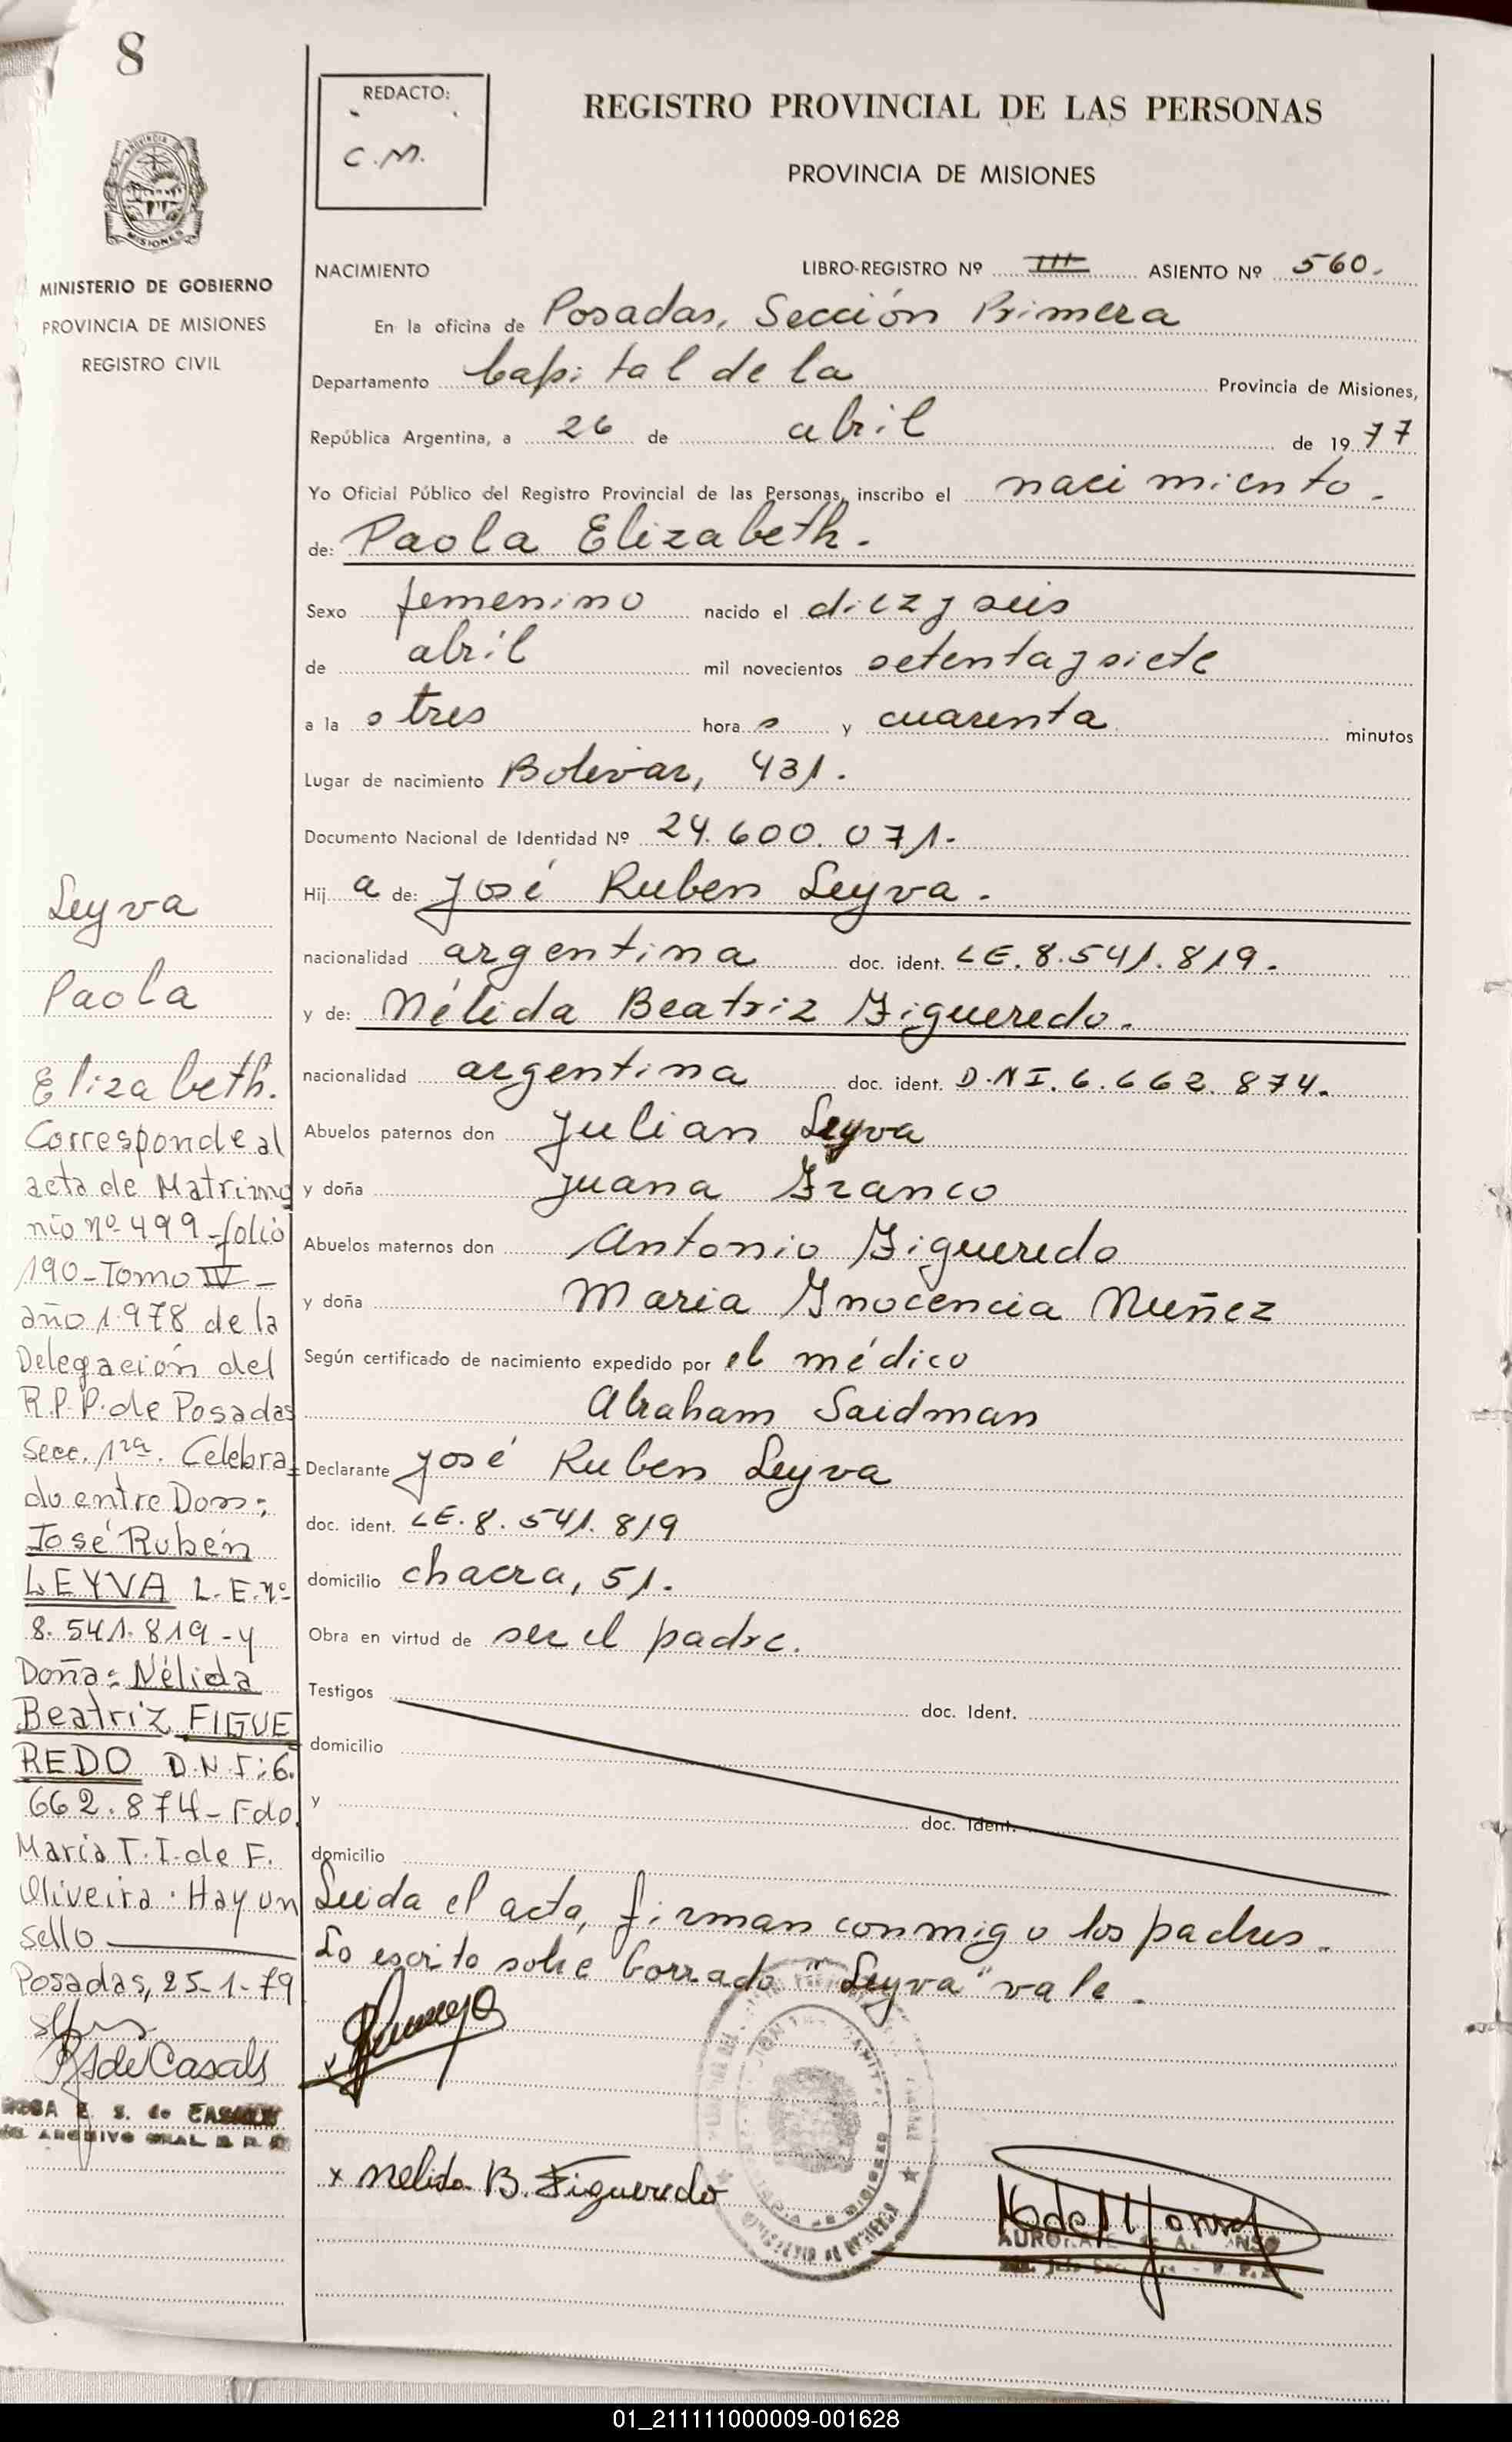 8
REDACTO:
C.M.
REGISTRO PROVINCIAL DE LAS PERSONAS
PROVINCIA DE MISIONES
MISIONES
MINISTERIO DE GOBIERNO
PROVINCIA DE MISIONES
REGISTRO CIVIL
NACIMIENTO LIBRO-REGISTRO Nº III ASIENTO Nº 560.
En la oficina de Posadas, Sección Primera
Departamento Capital de la Provincia de Misiones,
República Argentina, a 26 de abril de 1977
Yo Oficial Público del Registro Provincial de las Personas, inscribo el nacimiento.
de: Paola Elizabeth.
Sexo femenino nacido el diez y seis
de abril mil novecientos setenta y siete
a la s tres hora s y cuarenta minutos
Lugar de nacimiento Bolivar, 431.
Documento Nacional de Identidad Nº 24.600.071.
Hij a de: José Ruben Leyva.
nacionalidad argentina doc. ident. LE. 8.541.819.
y de: Nélida Beatriz Figueredo.
nacionalidad argentina doc. ident. D.N I. 6.662.874.
Abuelos paternos don Julian Leyva
y doña Juana Franco
Abuelos maternos don Antonio Figueredo
y doña Maria Inocencia Nuñez
Según certificado de nacimiento expedido por el médico
Abraham Saidman
Declarante José Ruben Leyva
doc. ident. LE. 8.541.819
domicilio chacra, 51.
Obra en virtud de ser el padre.
Testigos doc. Ident.
domicilio
y doc. Ident.
domicilio
Leida el acta, firman conmigo los padres.
Lo escrito sobre borrado "Leyva" vale.
x Nelida B. Figueredo
Leyva
Paola
Elizabeth.
Corresponde al
acta de Matrimo
nio nº 499-folio
190-Tomo IV-
año 1.978 de la
Delegación del
R.P.P. de Posadas
Secc. 1ra. Celebra
do entre Don:
José Rubén
LEYVA L.E. nº
8.541.819-y
Doña: Nélida
Beatriz FIGUE
REDO D.N.I: 6.
662.874-Fdo.
María T. I. de F.
Oliveira. Hay un
sello
Posadas, 25-1-79
de Casals
ROSA E. S. de CASALS
01_211111000009-001628